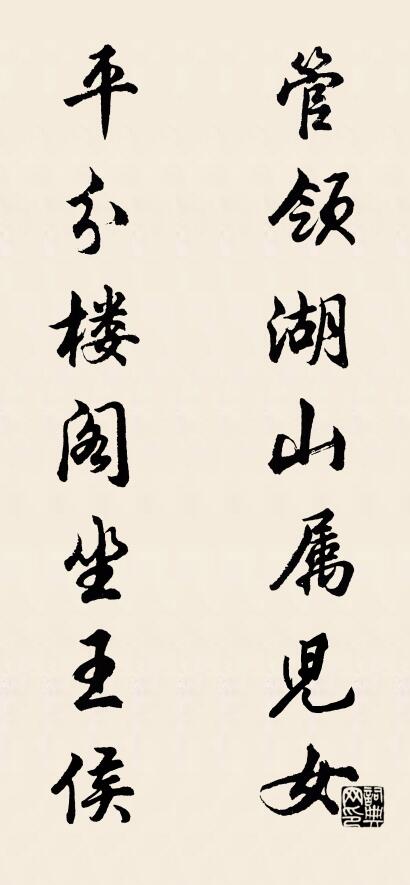 管领湖山属児女
平分楼阁坐王侯
詞典网印